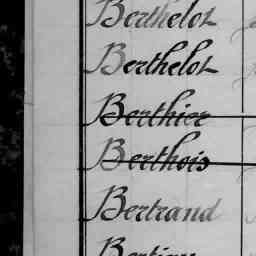 Berthelot
Berthelot
Berthier
Berthois
Bertrand